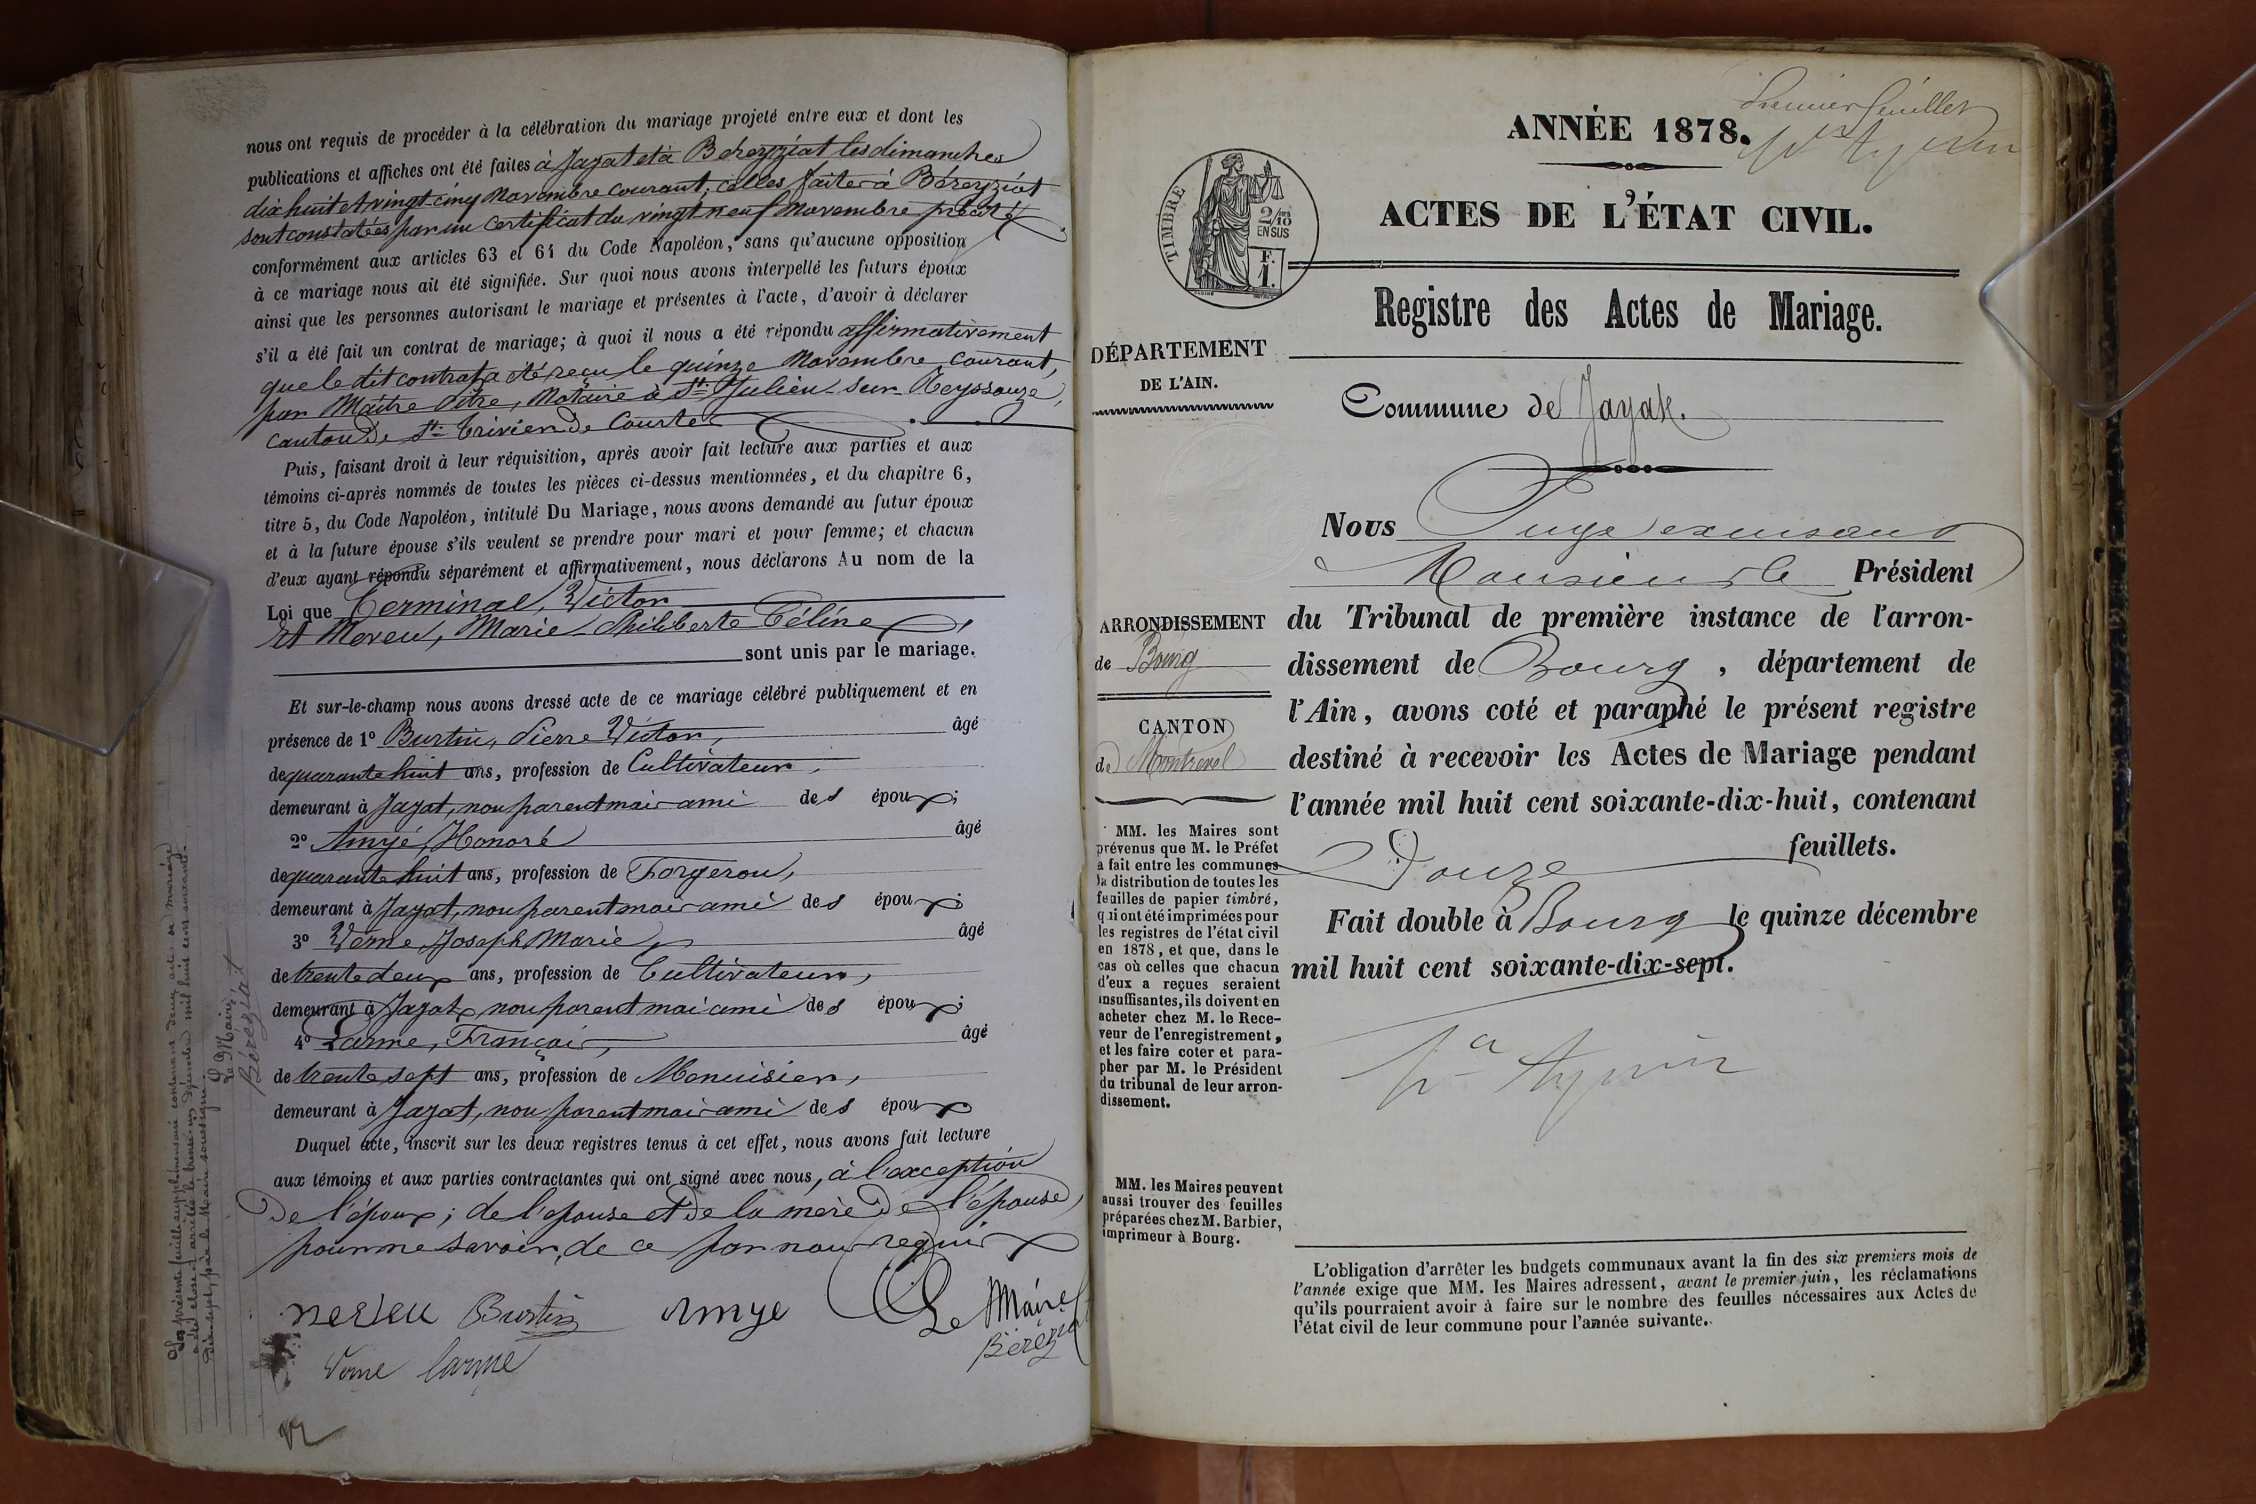 nous ont requis de procéder à la célébration du mariage projeté entre eux et dont les
publications et affiches ont été faites à Jayat et à Béreyziat les dimanches
dix huit et vingt-cinq Novembre courant; celles faites à Béreyziat
sont constatées par un certificat du vingt neuf Novembre précité
conformément aux articles 63 et 64 du Code Napoléon, sans qu'aucune opposition
à ce mariage nous ait été signifiée. Sur quoi nous avons interpellé les futurs époux
ainsi que les personnes autorisant le mariage et présentes à l'acte, d'avoir à déclarer
s'il a été fait un contrat de mariage; à quoi il nous a été répondu affirmativement
que le dit contrat a été reçu le quinze Novembre courant,
par Maître Pitre, Notaire à St. Julien-sur-Reyssouze,
canton de St. Trivier de Courtes
Puis, faisant droit à leur réquisition, après avoir fait lecture aux parties et aux
témoins ci-après nommés de toutes les pièces ci-dessus mentionnées, et du chapitre 6,
titre 5, du Code Napoléon, intitulé Du Mariage, nous avons demandé au futur époux
et à la future épouse s'ils veulent se prendre pour mari et pour femme; et chacun
d'eux ayant répondu séparément et affirmativement, nous déclarons Au nom de la
Loi que Terminal, Victor
et Moreu, Marie-Philiberte Céline,
sont unis par le mariage.
Et sur-le-champ nous avons dressé acte de ce mariage célébré publiquement et en
présence de 1º Burtin, Pierre Victor, âgé
de quarante huit ans, profession de Cultivateur,
demeurant à Jayat, non parent mais ami des époux;
2º Amyé, Honoré âgé
de quarante huit ans, profession de Forgeron,
demeurant à Jayat, non parent mais ami des époux;
3º Verne, Joseph Marie, âgé
de trente deux ans, profession de Cultivateur,
demeurant à Jayat, non parent mais ami des époux;
4º Larme, François, âgé
de trente sept ans, profession de Menuisier,
demeurant à Jayat, non parent mais ami des époux
Duquel acte, inscrit sur les deux registres tenus à cet effet, nous avons fait lecture
aux témoins et aux parties contractantes qui ont signé avec nous, à l'exception
De l'époux; de l'épouse et De la mère De l'épouse,
pour ne savoir, de ce par nous requis
Burtin Amye Le Maire
Béréziat
Verne Larme
La présente feuille supplémentaire contenant deux actes de mariage
a été close et arrêtée le trente un Décembre mil huit cent soixante-
Dix-sept, par le Maire soussigné.
Le Maire
Béréziat
Premier feuillet
ANNÉE 1878.
ACTES DE L'ÉTAT CIVIL.
TIMBRE
2/10 EN SUS
F. 1.
Registre des Actes de Mariage.
DÉPARTEMENT
DE L'AIN.
Commune de Jayat.
Nous Puys excusant
Monsieur le Président
du Tribunal de première instance de l'arron-
dissement de Bourg, département de
l'Ain, avons coté et paraphé le présent registre
destiné à recevoir les Actes de Mariage pendant
l'année mil huit cent soixante-dix-huit, contenant
Douze feuillets.
Fait double à Bourg le quinze décembre
mil huit cent soixante-dix-sept.
ARRONDISSEMENT
de Bourg
CANTON
de Montrevel
MM. les Maires sont
prévenus que M. le Préfet
a fait entre les communes
la distribution de toutes les
feuilles de papier timbré,
qui ont été imprimées pour
les registres de l'état civil
en 1878, et que, dans le
cas où celles que chacun
d'eux a reçues seraient
insuffisantes, ils doivent en
acheter chez M. le Rece-
veur de l'enregistrement,
et les faire coter et para-
pher par M. le Président
du tribunal de leur arron-
dissement.
MM. les Maires peuvent
aussi trouver des feuilles
préparées chez M. Barbier,
imprimeur à Bourg.
L'obligation d'arrêter les budgets communaux avant la fin des six premiers mois de
l'année exige que MM. les Maires adressent, avant le premier juin, les réclamations
qu'ils pourraient avoir à faire sur le nombre des feuilles nécessaires aux Actes de
l'état civil de leur commune pour l'année suivante.